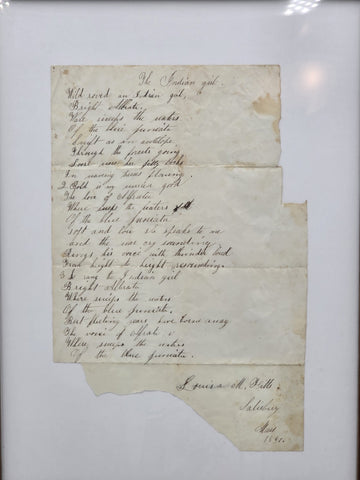 The Indian girl.
Wild roved an Indian girl,
Bright Alfrata,
Where sweeps the waters
Of the blue Juniata
Swift as an antelope
Through the forests going
Loose were her jetty locks
In waving tresses flowing.
2 Bold is my warrior good
The love of Alfrata
Where sweeps the waters
Of the blue Juniata
Soft and low he speaks to me
and the war cry sounding
Rings his voice with thunder loud
From height to height resounding.
3 So sang the Indian girl
Bright Alfrata
Where sweeps the waters
Of the blue Juniata.
Fleeting years have borne away
The voice of Alfrata
Where sweeps the waters
Of the blue Juniata.
Louisa M.
Salisbury
Mass